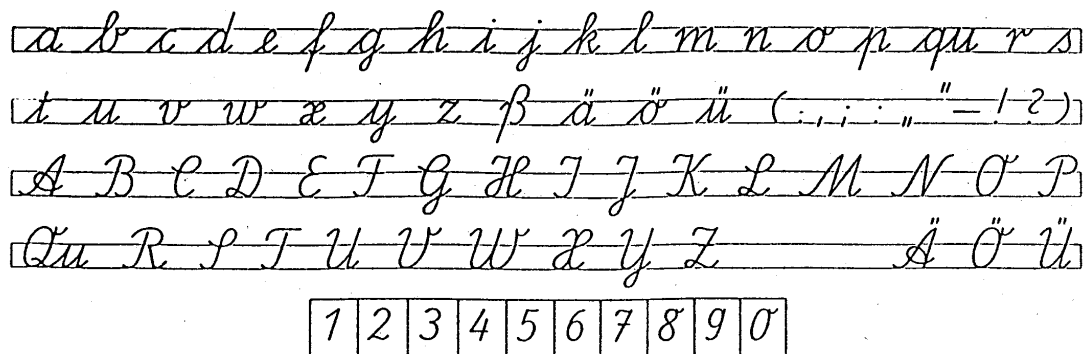 a b c d e f g h i j k l m n o p qu r s
t u v w x y z ß ä ö ü ( . , ; : „ " – ! ? )
A B C D E F G H I J K L M N O P
Qu R S T U V W X Y Z Ä Ö Ü
1 2 3 4 5 6 7 8 9 0